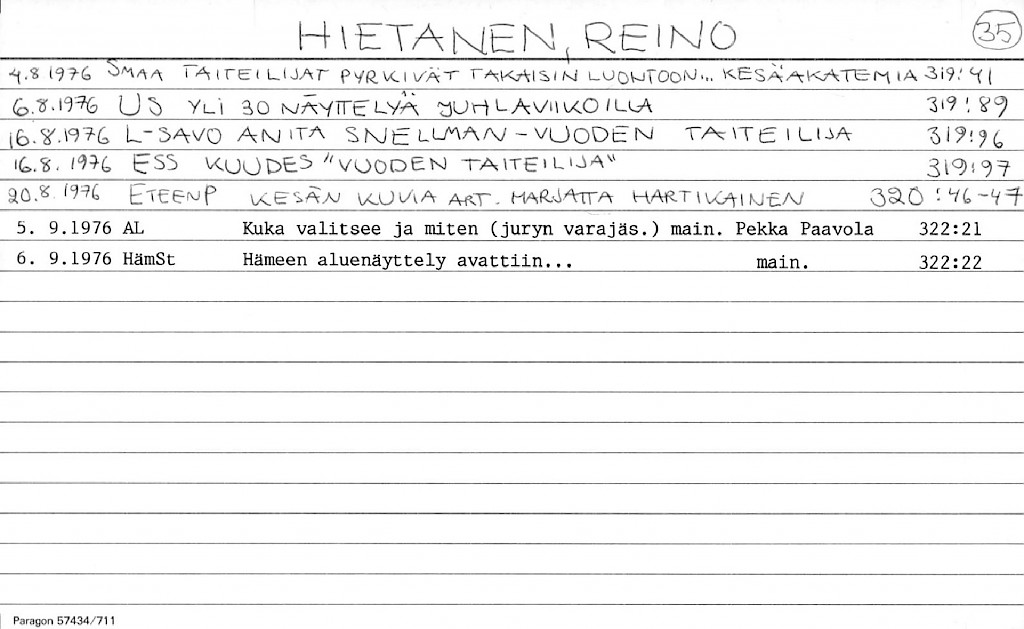 HIETANEN, REINO
35
4.8 1976 SMAA TAITEILIJAT PYRKIVÄT TAKAISIN LUONTOON... KESÄAKATEMIA 319:41
6.8.1976 US YLI 30 NÄYTTELYÄ JUHLAVIIKOILLA 319:89
16.8.1976 L-SAVO ANITA SNELLMAN-VUODEN TAITEILIJA 319:96
16.8.1976 ESS KUUDES "VUODEN TAITEILIJA" 319:97
20.8 1976 ETEENP KESÄN KUVIA ART. MARJATTA HARTIKAINEN 320:46-47
5. 9.1976 AL Kuka valitsee ja miten (juryn varajäs.) main. Pekka Paavola 322:21
6. 9.1976 HämSt Hämeen aluenäyttely avattiin... main. 322:22
Paragon 57434/711